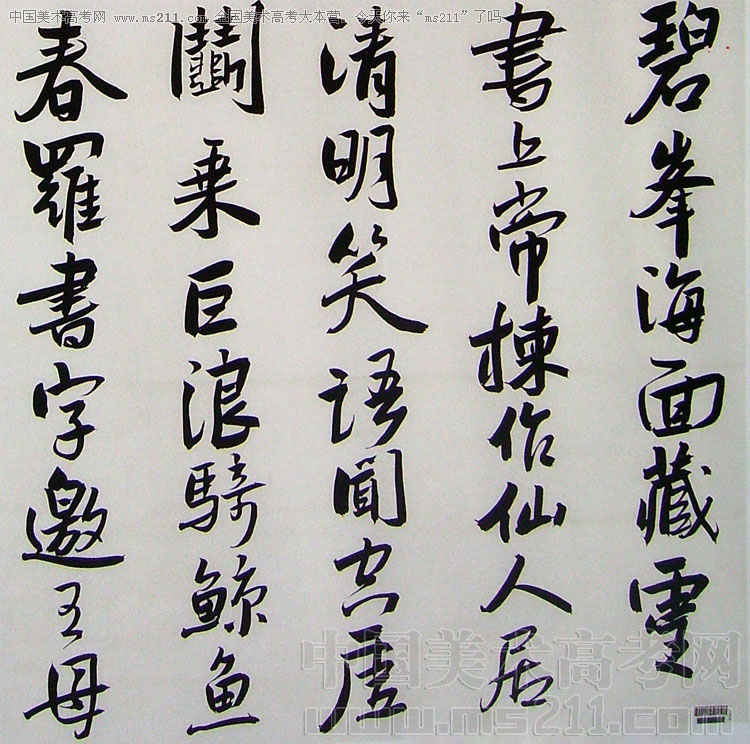 中国美术高考网 www.ms211.com 全国美术高考大本营。今天你来“ms211”了吗
碧峯海面藏靈
書上帝揀作仙人居
清明笑語聞空虛
鬭乗巨浪騎鯨鱼
春羅書字邀王母
中国美术高考网
www.ms211.com